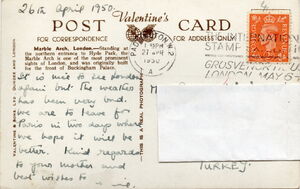 26th April 1950.
Valentine's
POST CARD
FOR CORRESPONDENCE
FOR ADDRESS ONLY
Marble Arch, London.—Standing at
the northern entrance to Hyde Park, the
Marble Arch is one of the most prominent
sights of London, and was originally built
for the front of Buckingham Palace.
PADDINGTON. W2
1 PM
27 APR
1950
A
INTERNATIONAL
STAMP
GROSVENOR
LONDON. MAY 6
THIS IS A REAL PHOTOGRAPH
It is nice to see London
again but the weather has
been very bad. We
are to leave for
Paris in two days where
we hope it will be
better. Kind regards
to your mother and
best wishes to
TURKEY.